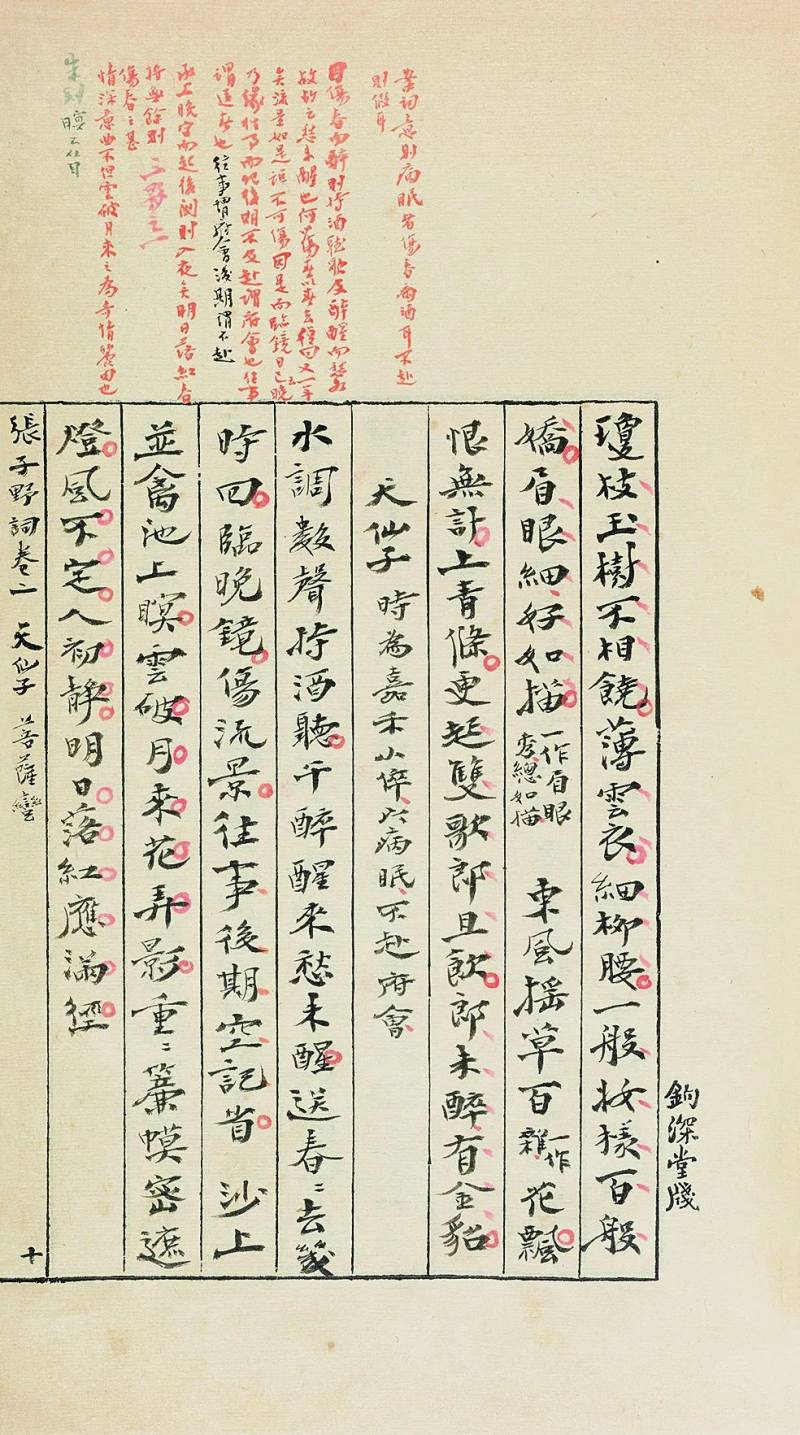 案詞意則病眠者傷春兩酒耳不赴
則假耳
因傷春而醉則持酒聽歌及醉醒而愁
故故之愁未醒也何蕩春去
矣流景如是詎不可傷因是而臨鏡日已晚
乃緣往事而記後期不及赴謂府會也往事
謂送春也往事謂府會後期謂不赴
承上晚字而起後闋則入夜矣明日落紅
將無餘則
傷春之甚
情深意曲不但雲破月來之為奇情麗句也
朱 暝不从日
瓊枝玉樹不相饒薄雲衣細柳腰一般妝樣百般
嬌眉眼細好如描一作眉眼秀總如描 東風搖草百一作雜花飄
恨無計上青條更起雙歌郎且飲郎未醉有金貂
天仙子 時為嘉禾小倅以病眠不赴府會
水調數聲持酒聽午醉醒來愁未醒送春〻去幾
時回臨晚鏡傷流景往事後期空記省 沙上
並禽池上暝雲破月來花弄影重〻簾幙密遮
燈風不定人初靜明日落紅應滿徑
張子野詞卷二 天仙子 菩薩蠻 十
鉤深堂牋